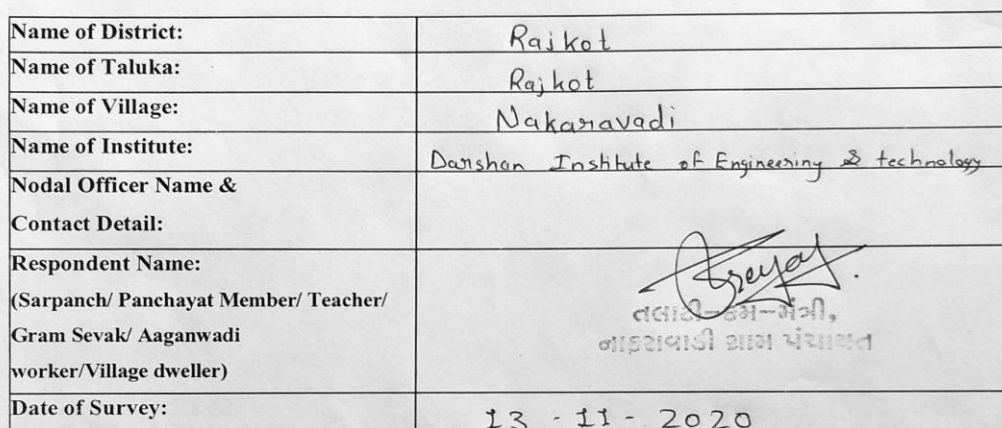 Name of District: Rajkot
Name of Taluka: Rajkot
Name of Village: Nakaravadi
Name of Institute: Darshan Institute of Engineering & technology
Nodal Officer Name &
Contact Detail:
Respondent Name:
(Sarpanch/ Panchayat Member/ Teacher/
તલાટી-કમ-મંત્રી,
Gram Sevak/ Aaganwadi
નાકરાવાડી ગ્રામ પંચાયત
worker/Village dweller)
Date of Survey: 13 - 11 - 2020